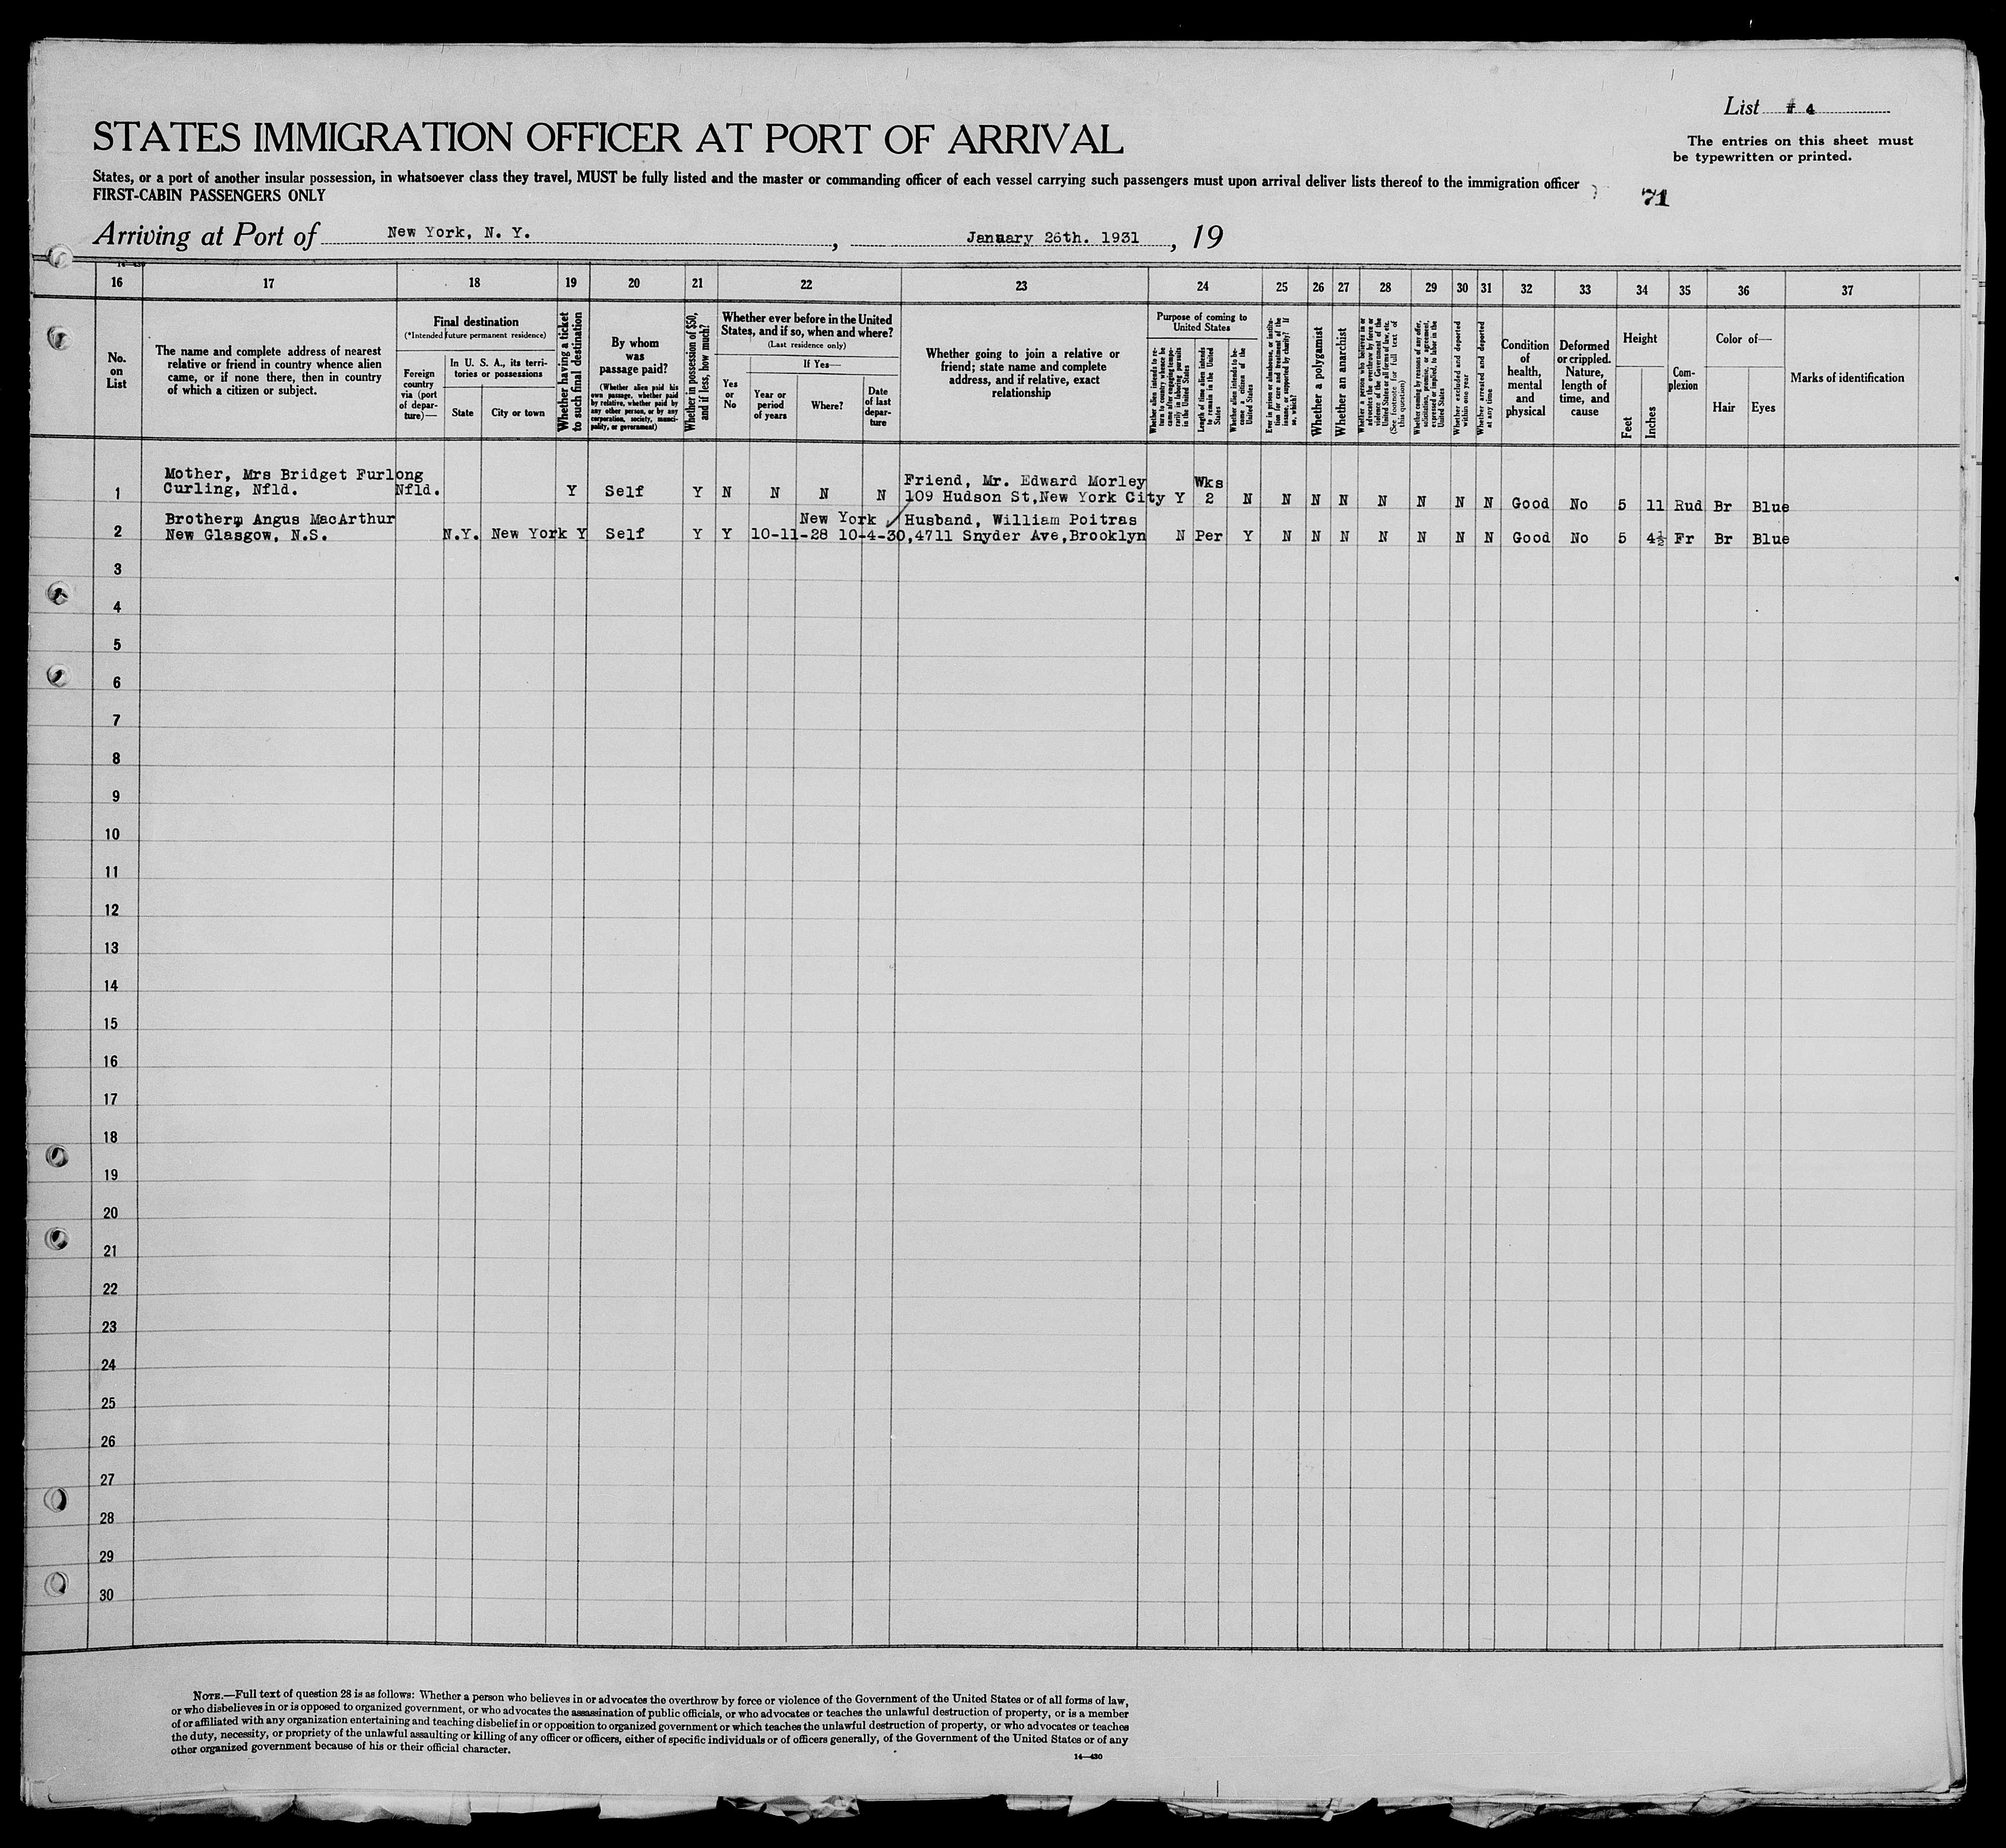 List # 4
STATES IMMIGRATION OFFICER AT PORT OF ARRIVAL
The entries on this sheet must
be typewritten or printed.
States, or a port of another insular possession, in whatsoever class they travel, MUST be fully listed and the master or commanding officer of each vessel carrying such passengers must upon arrival deliver lists thereof to the immigration officer
FIRST-CABIN PASSENGERS ONLY
71
Arriving at Port of New York, N. Y., January 26th. 1931, 19
14—430
16 17 18 19 20 21 22 23 24 25 26 27 28 29 30 31 32 33 34 35 36 37
No.
on
List
The name and complete address of nearest
relative or friend in country whence alien
came, or if none there, then in country
of which a citizen or subject.
Final destination
(*Intended future permanent residence)
Foreign
country
via (port
of depar-
ture)—
In U. S. A., its terri-
tories or possessions
State
City or town
Whether having a ticket
to such final destination
By whom
was
passage paid?
(Whether alien paid his
own passage, whether paid
by relative, whether paid by
any other person, or by any
corporation, society, munici-
pality, or government)
Whether in possession of $50,
and if less, how much?
Whether ever before in the United
States, and if so, when and where?
(Last residence only)
If Yes—
Yes
or
No
Year or
period
of years
Where?
Date
of last
depar-
ture
Whether going to join a relative or
friend; state name and complete
address, and if relative, exact
relationship
Purpose of coming to
United States
Whether alien intends to re-
turn to country whence he
came after engaging tempo-
rarily in laboring pursuits
in the United States
Length of time alien intends
to remain in the United
States
Whether alien intends to be-
come a citizen of the
United States
Ever in prison or almshouse, or institu-
tion for care and treatment of the
insane, or supported by charity? If
so, which?
Whether a polygamist
Whether an anarchist
Whether a person who believes in or
advocates the overthrow by force or
violence of the Government of the
United States or all forms of law, etc.
(See footnote for full text of
this question)
Whether coming by reasons of any offer,
solicitation, promise, or agreement,
expressed or implied, to labor in the
United States
Whether excluded and deported
within one year
Whether arrested and deported
at any time
Condition
of
health,
mental
and
physical
Deformed
or crippled.
Nature,
length of
time, and
cause
Height
Feet
Inches
Com-
plexion
Color of—
Hair
Eyes
Marks of identification
Mother, Mrs Bridget Furlong Friend, Mr. Edward Morley Wks
1 Curling, Nfld. Nfld. Y Self Y N N N N 109 Hudson St,New York City Y 2 N N N N N N N N Good No 5 11 Rud Br Blue
Brother, Angus MacArthur New York Husband, William Poitras
2 New Glasgow, N.S. N.Y. New York Y Self Y Y 10-11-28 10-4-30,4711 Snyder Ave,Brooklyn N Per Y N N N N N N N Good No 5 4½ Fr Br Blue
3
4
5
6
7
8
9
10
11
12
13
14
15
16
17
18
19
20
21
22
23
24
25
26
27
28
29
30
NOTE.—Full text of question 28 is as follows: Whether a person who believes in or advocates the overthrow by force or violence of the Government of the United States or of all forms of law,
or who disbelieves in or is opposed to organized government, or who advocates the assassination of public officials, or who advocates or teaches the unlawful destruction of property, or is a member
of or affiliated with any organization entertaining and teaching disbelief in or opposition to organized government or which teaches the unlawful destruction of property, or who advocates or teaches
the duty, necessity, or propriety of the unlawful assaulting or killing of any officer or officers, either of specific individuals or of officers generally, of the Government of the United States or of any
other organized government because of his or their official character.
14—430